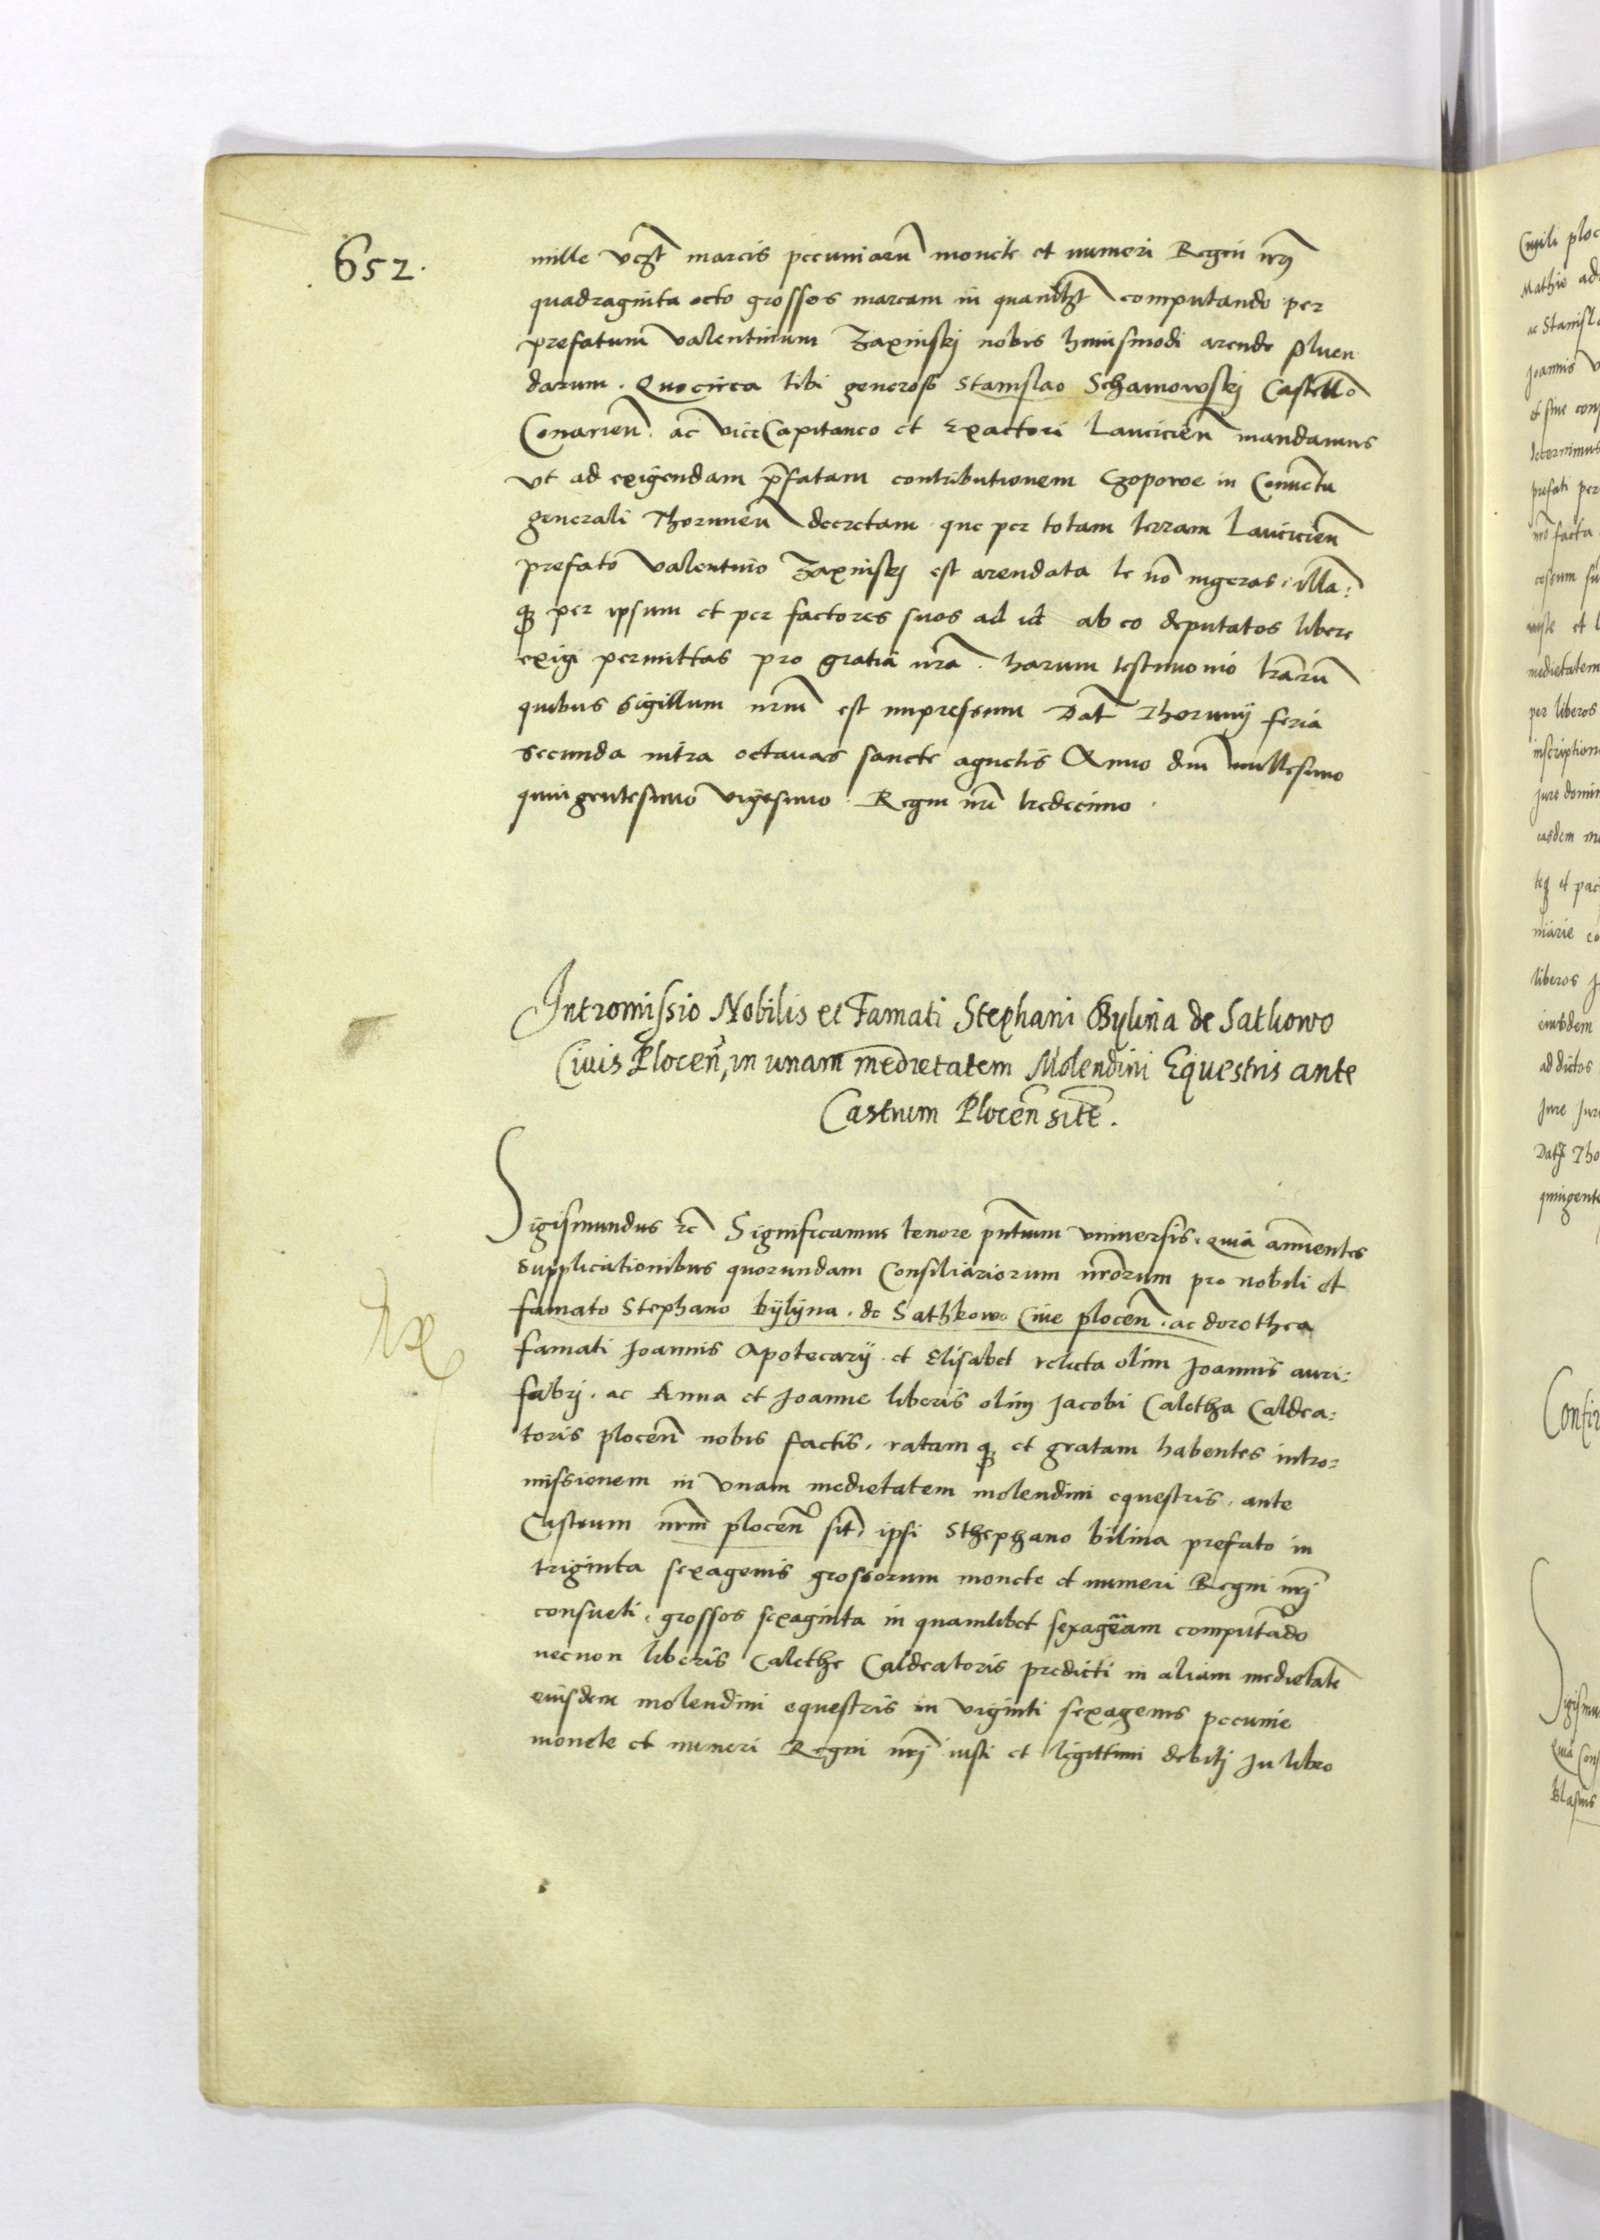 652.
mille vczt marcis pecuniarū monete et numeri Regni nrj
quadraginta octo grossos marcam in quamlzt computando per
prefatum valentinum Zaxinskj nobis huiusmodi arende soluen
darum. Quocirca tibi generoso Stanislao Schamowskj Castellō
Conarieñ. ac viceCapitaneo et Exactori Lancicieñ mandamus
vt ad exigendam p̄fatam contributionem Czopowe in Conuētu
generali Thoruneñ decretam que per totam terram Lancicieñ
prefato valentino Zaxinskj est arendata te nō ingeras, illā:
qȝ per ipsum et per factores suos ad id ab eo deputatos libere
exigi permittas pro gratia nrā. harum testimonio lrārū
quibus sigillum nrm̄ est impressum Dat̄ Thorunij feria
secunda infra octauas sancte agnetis Anno dnī millesimo
quingentesimo vigesimo. Regni nrī tredecimo.
Intromissio Nobilis et Famati Stephani Bylina de Sathowo
Ciuis Ploceñ, in unam medietatem Molendini Equestris ante
Castrum Ploceñ sitē.
Sigismundus ꝛc̄ Significamus tenore pn̄tium vniuersis. quia annuentes
supplicationibus quorundam Consiliariorum nrōrum pro nobili et
famato Stephano bijlijna. de Sathkowo Ciue ploceñ. ac dorothea
famati Joannis Apotecarij. et Elisabet relicta olim Joannis auri:
fabrj. ac Anna et Joanne liberis olim Jacobi Caletha Caldea:
toris ploceñ nobis factis, ratam qȝ et gratam habentes intro:
missionem in vnam medietatem molendini equestris, ante
Castrum nrm̄ ploceñ sit̄ ipsi Sthephano bilina prefato in
triginta sexagenis grossorum monete et numeri Regni nrj
consueti, grossos sexaginta in quamlibet sexagēam computādo
necnon liberis Calethe Caldeatoris predicti in aliam medietatē
eiusdem molendini equestris in viginti sexagenis pecunie
monete et numeri Regni nrj iusti et legittimi debitj In libro